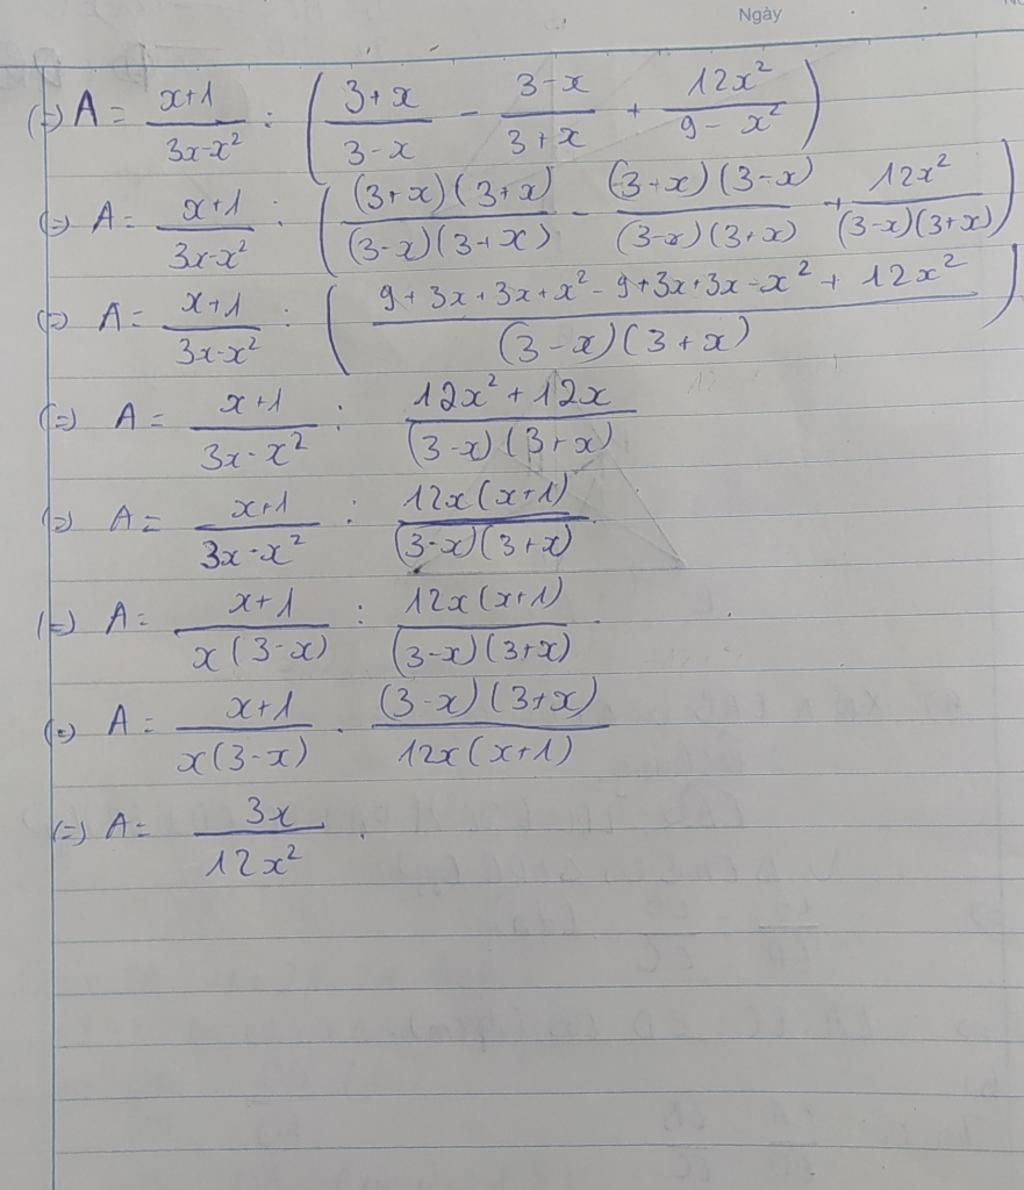 Ngày
(=) A = \frac{x+1}{3x-x^2} : ( \frac{3+x}{3-x} - \frac{3-x}{3+x} + \frac{12x^2}{9-x^2} )
(=) A = \frac{x+1}{3x-x^2} : ( \frac{(3+x)(3+x)}{(3-x)(3+x)} - \frac{(3-x)(3-x)}{(3-x)(3+x)} + \frac{12x^2}{(3-x)(3+x)} )
(=) A = \frac{x+1}{3x-x^2} : ( \frac{9+3x+3x+x^2-9+3x+3x-x^2+12x^2}{(3-x)(3+x)} )
(=) A = \frac{x+1}{3x-x^2} : \frac{12x^2+12x}{(3-x)(3+x)}
(=) A = \frac{x+1}{3x-x^2} : \frac{12x(x+1)}{(3-x)(3+x)}
(=) A = \frac{x+1}{x(3-x)} : \frac{12x(x+1)}{(3-x)(3+x)}
(=) A = \frac{x+1}{x(3-x)} . \frac{(3-x)(3+x)}{12x(x+1)}
(=) A = \frac{3x}{12x^2} .